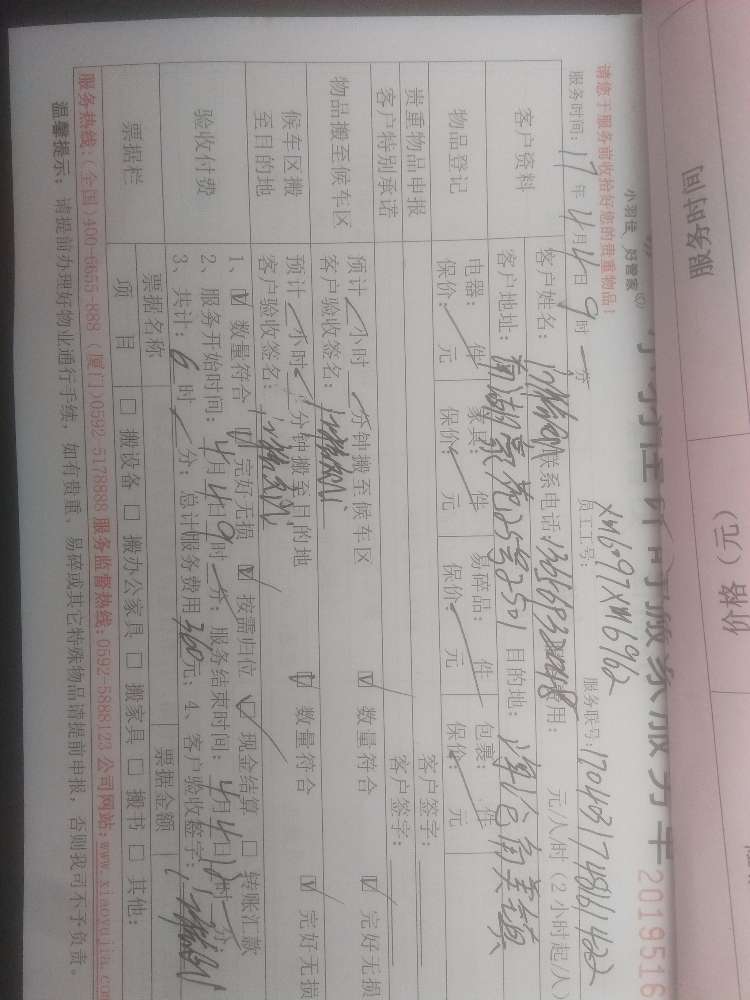 服务时间
价格（元）
小羽佳 好管家
2019516
请您于服务前收拾好您的贵重物品！
员工工号： XM6097XM6962
服务联号：
服务时间：17年4月4日9时 分
客户资料
客户姓名：
联系电话
费用： 元/人/时（2小时起/人）
客户地址： 25号2501
目的地：
物品登记
电器： 件 家具： 件 易碎品： 件 包裹： 件
保价： 元 保价： 元 保价： 元 保价： 元
贵重物品申报
客户签字：
客户特别承诺
客户签字：
物品搬至候车区
预计 小时 分钟搬至候车区 ☑ 数量符合 ☑ 完好无损
客户验收签名：
候车区搬至目的地
预计 小时 分钟搬至目的地 ☑ 数量符合 ☑ 完好无损
客户验收签名：
验收付费
1、☑ 数量符合 ☑ 完好无损 ☑ 按需归位 ☑ 现金结算 □ 转账汇款
2、服务开始时间：4月4日9时 分；服务结束时间：4月4日 时 分
3、共计：6时 分；总计服务费用360元；4、客户验收签字：
票据栏
票据名称
票据金额
项 目
□ 搬设备 □ 搬办公家具 □ 搬家具 □ 搬书 □ 其他：
服务热线：(全国)400-6655-888 (厦门)0592-5178888 服务监督热线：0592-5888123 公司网站：www.xiaoyujia.com
温馨提示：请提前办理好物业通行手续，如有贵重、易碎或其它特殊物品请提前申报，否则我司不予负责。